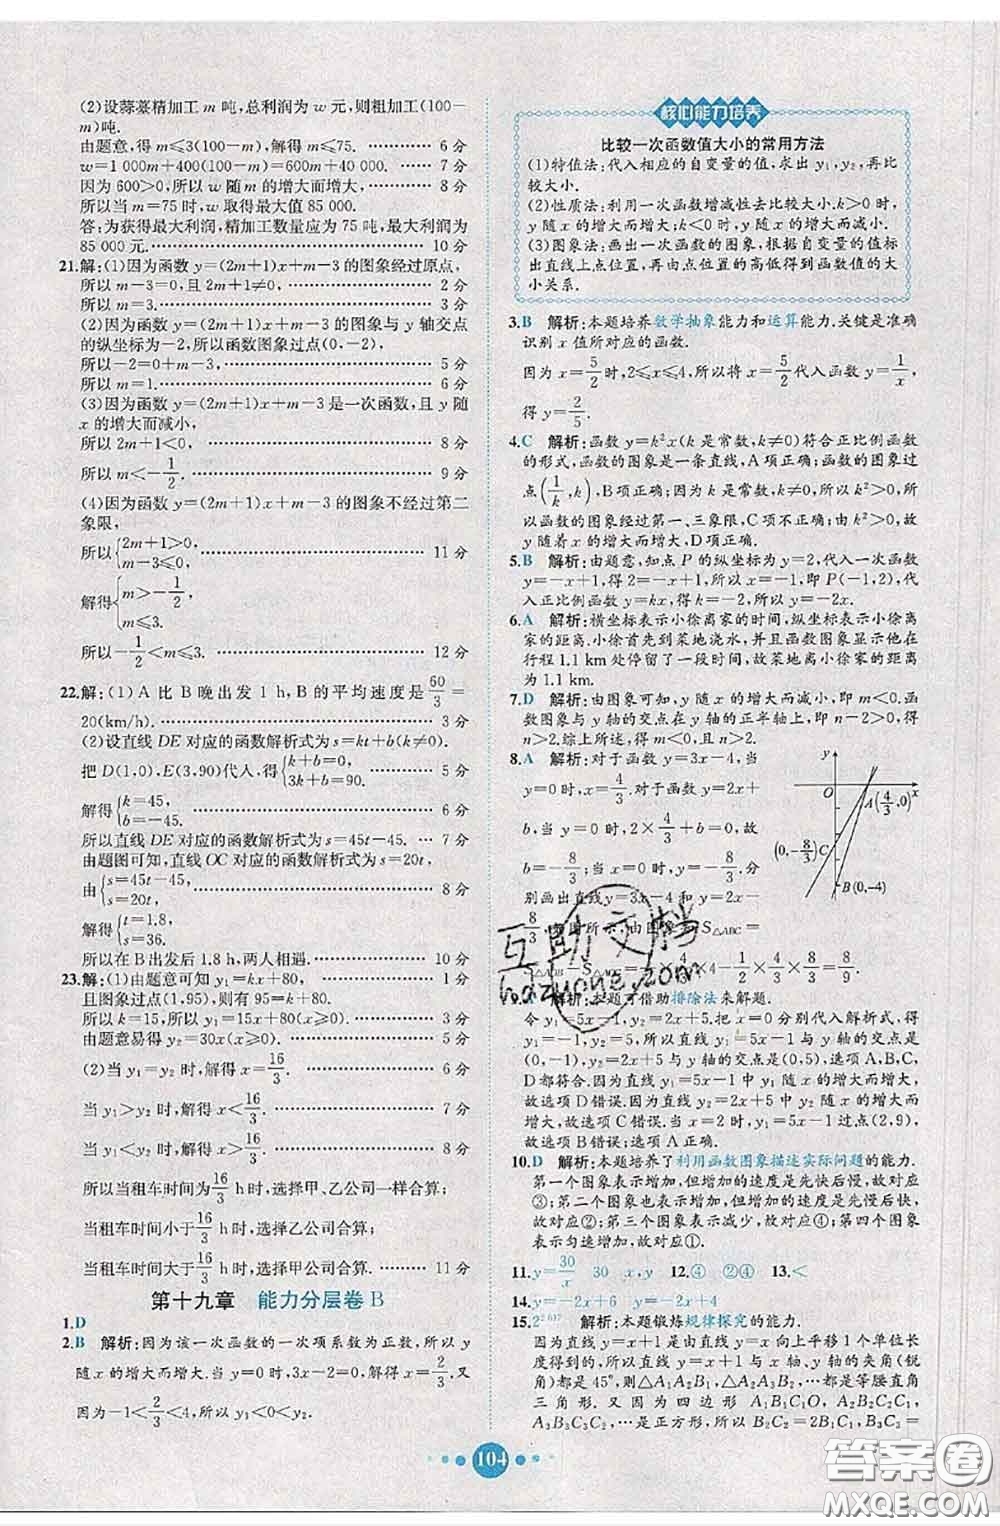 (2)设蒜薹精加工 m 吨,总利润为 w 元,则粗加工(100-
m)吨.
由题意,得 m≤3(100-m),解得 m≤75. …… 6 分
w=1 000m+400(100-m)=600m+40 000. …… 7 分
因为 600>0,所以 w 随 m 的增大而增大, …… 8 分
所以当 m=75 时,w 取得最大值 85 000.
答:为获得最大利润,精加工数量应为 75 吨,最大利润为
85 000 元. …… 10 分
21.解:(1)因为函数 y=(2m+1)x+m-3 的图象经过原点,
所以 m-3=0,且 2m+1≠0, …… 2 分
所以 m=3. …… 3 分
(2)因为函数 y=(2m+1)x+m-3 的图象与 y 轴交点
的纵坐标为-2,所以函数图象过点(0,-2),
所以-2=0+m-3, …… 5 分
所以 m=1. …… 6 分
(3)因为函数 y=(2m+1)x+m-3 是一次函数,且 y 随
x 的增大而减小,
所以 2m+1<0, …… 8 分
所以 m<-1/2. …… 9 分
(4)因为函数 y=(2m+1)x+m-3 的图象不经过第二
象限,
所以{2m+1>0, m-3≤0, …… 11 分
解得{m>-1/2, m≤3.
所以-1/2<m≤3. …… 12 分
22.解:(1)A 比 B 晚出发 1 h,B 的平均速度是 60/3=
20(km/h). …… 3 分
(2)设直线 DE 对应的函数解析式为 s=kt+b(k≠0).
把 D(1,0),E(3,90)代人,得{k+b=0, 3k+b=90. …… 5 分
解得{k=45, b=-45. …… 6 分
所以直线 DE 对应的函数解析式为 s=45t-45. … 7 分
由题图可知,直线 OC 对应的函数解析式为 s=20t,
由{s=45t-45, s=20t, …… 8 分
解得{t=1.8, s=36.
所以在 B 出发后 1.8 h,两人相遇. …… 10 分
23.解:(1)由题意可知 y₁=kx+80, …… 1 分
且图象过点(1,95),则有 95=k+80,
所以 k=15,所以 y₁=15x+80(x≥0). …… 3 分
由题意易得 y₂=30x(x≥0). …… 4 分
(2)当 y₁=y₂ 时,解得 x=16/3. …… 6 分
当 y₁>y₂ 时,解得 x<16/3. …… 7 分
当 y₁<y₂ 时,解得 x>16/3. …… 8 分
所以当租车时间为 16/3 h 时,选择甲、乙公司一样合算;
当租车时间小于 16/3 h 时,选择乙公司合算;
当租车时间大于 16/3 h 时,选择甲公司合算. …… 11 分
第十九章 能力分层卷 B
1.D
2.B 解析:因为该一次函数的一次项系数为正数,所以 y
随 x 的增大而增大. 当 y=0 时,3x-2=0,解得 x=2/3,又
因为-1<2/3<4,所以 y₁<0<y₂.
核心能力培养
比较一次函数值大小的常用方法
(1)特值法:代入相应的自变量的值,求出 y₁,y₂,再比
较大小.
(2)性质法:利用一次函数增减性去比较大小.k>0 时,
y 随 x 的增大而增大;k<0 时,y 随 x 的增大而减小.
(3)图象法:画出一次函数的图象,根据自变量的值标
出直线上点位置,再由点位置的高低得到函数值的大
小关系.
3.B 解析:本题培养数学抽象能力和运算能力.关键是准确
识别 x 值所对应的函数.
因为 x=5/2 时,2≤x≤4,所以将 x=5/2 代入函数 y=1/x,
得 y=2/5.
4.C 解析:函数 y=k²x(k 是常数,k≠0)符合正比例函数
的形式,函数的图象是一条直线,A项正确;函数图象过
点(1/k,k),B项正确;因为 k 是常数,k≠0,所以 k²>0,所
以函数的图象经过第一、三象限,C项不正确;由 k²>0,
故 y 随着 x 的增大而增大,D项正确.
5.B 解析:由题意,知点 P 的纵坐标为 y=2,代入一次函数
y=-x+1,得 2=-x+1,所以 x=-1,即 P(-1,2),代
入正比例函数 y=kx,得 k=-2,所以 y=-2x.
6.A 解析:横坐标表示小徐离家的时间,纵坐标表示小徐离
家的距离.小徐首先到菜地浇水,并且函数图象表明他在
行程 1.1 km 处停留了一段时间,故菜地离小徐家的距离
为 1.1 km.
7.D 解析:由图象可知,y 随 x 的增大而减小,即 m<0.函
数图象与 y 轴的交点在 y 轴的正半轴上,即 n-2>0,得
n>2.综上所述,得 m<0,且 n>2.
8.A 解析:对于函数 y=3x-4,当
y=0时,x=4/3.对于函数 y=2x+
b,当 y=0 时,2×4/3+b=0,故
b=-8/3;当 x=0 时,y=-8/3.分
别画出直线 y=3x-4 和 y=2x-
8/3 如图所示,由图象知 S△ABC=
S△AOB-S△AOC=1/2×4/3×4-1/2×4/3×8/3=8/9.
y
O
x
A(4/3,0)
(0,-8/3)C
B(0,-4)
A 解析:本题可借助排除法来解题.
令 y₁=5x-1,y₂=2x+5.把 x=0 分别代入解析式,得
y₁=-1,y₂=5,所以直线 y₁=5x-1 与 y 轴的交点是
(0,-1),y₂=2x+5 与 y 轴的交点是(0,5),选项 A、B、C、
D 都符合.因为直线 y₁=5x-1 随 x 的增大而增大,
故选项 D 错误.因为直线 y₂=2x+5 中 y₂ 随 x 的增大而
增大,故选项 C 错误.当 x=2 时,y₂=2x+5 过点(2,9),
故选项 B 错误;选项 A 正确.
10.D 解析:本题培养了利用函数图象描述实际问题的能力.
第一个图象表示增加,但增加的速度是先快后慢,故对应
③;第二个图象也表示增加,但增加的速度是先慢后快,
故对应②;第三个图象表示减少,故对应④;第四个图象
表示匀速增加,故对应①.
11.y=30/x 30 x,y 12.④ ②④ 13.<
14.y=-2x+6 y=-2x+4
15.2²⁰¹⁷ 解析:本题锻炼规律探究的能力.
因为直线 y=x+1 是由直线 y=x 向上平移 1 个单位长
度得到的,所以直线 y=x+1 与 x 轴、y 轴的夹角(锐
角)都是 45°,则△A₁A₂B₁、△A₂A₃B₂、…都是等腰直角
三角形.又因为四边形 A₁B₁C₁O,A₂B₂C₂C₁,
A₃B₃C₃C₂,…是正方形,所以 B₂C₂=2B₁C₁,B₃C₃=
104
互助文档
hdzuone.com
答案圈
MXQE.COM